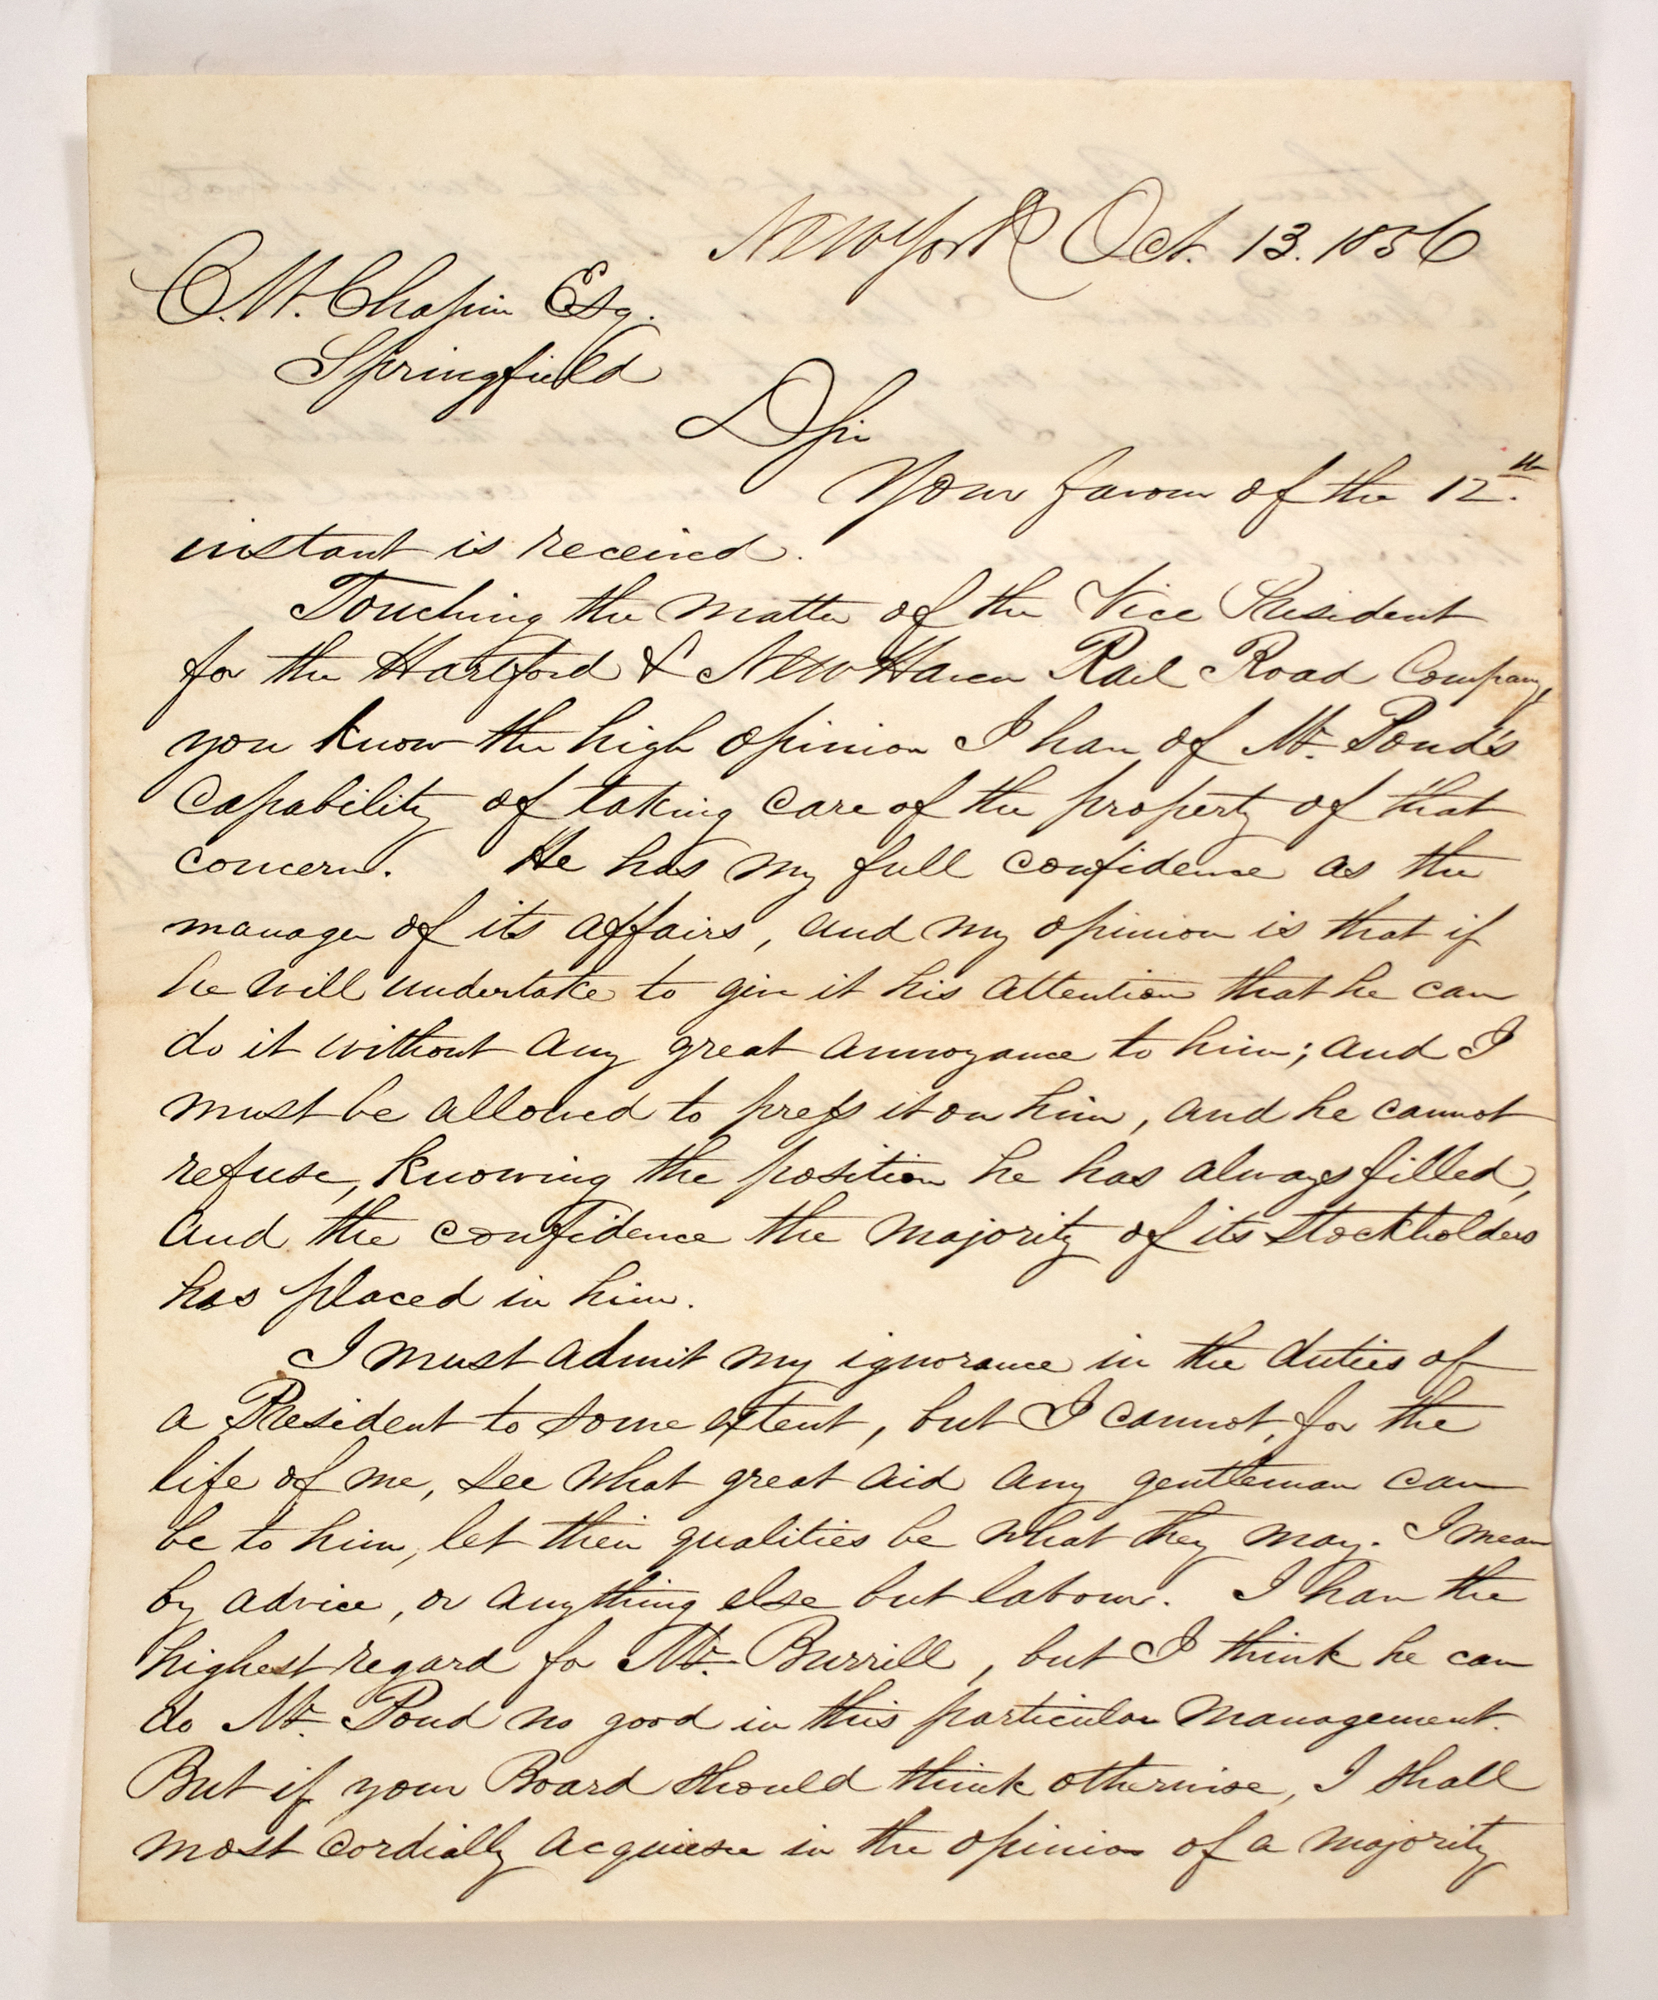 New York Oct. 13. 1856
C. W. Chapin Esq.
Springfield
D Sir
Your favour of the 12th.
instant is received.
Touching the matter of the Vice President
for the Hartford & New Haven Rail Road Company,
you know the high opinion I have of Mr. Pond's
capability of taking care of the property of that
concern. He has my full confidence as the
manager of its affairs, and my opinion is that if
he will undertake to give it his attention that he can
do it without any great annoyance to him; and I
must be allowed to press it on him, and he cannot
refuse, knowing the position he has always filled,
and the confidence the majority of its stockholders
has placed in him.
I must admit my ignorance in the duties of
a President to some extent, but I cannot, for the
life of me, see what great aid any gentleman can
be to him, let their qualities be what they may. I mean
by advice, or anything else but labour. I have the
highest regard for Mr. Burrill, but I think he can
do Mr. Pond no good in this particular management.
But if your Board should think otherwise, I shall
most cordially acquiesce in the opinion of a majority